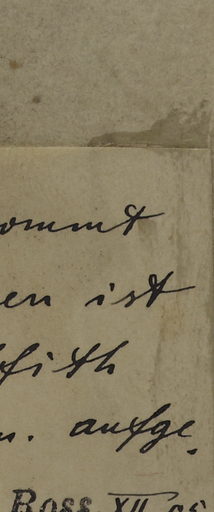 ommt
en ist
fith
n. aufge.
Ross. XII 95